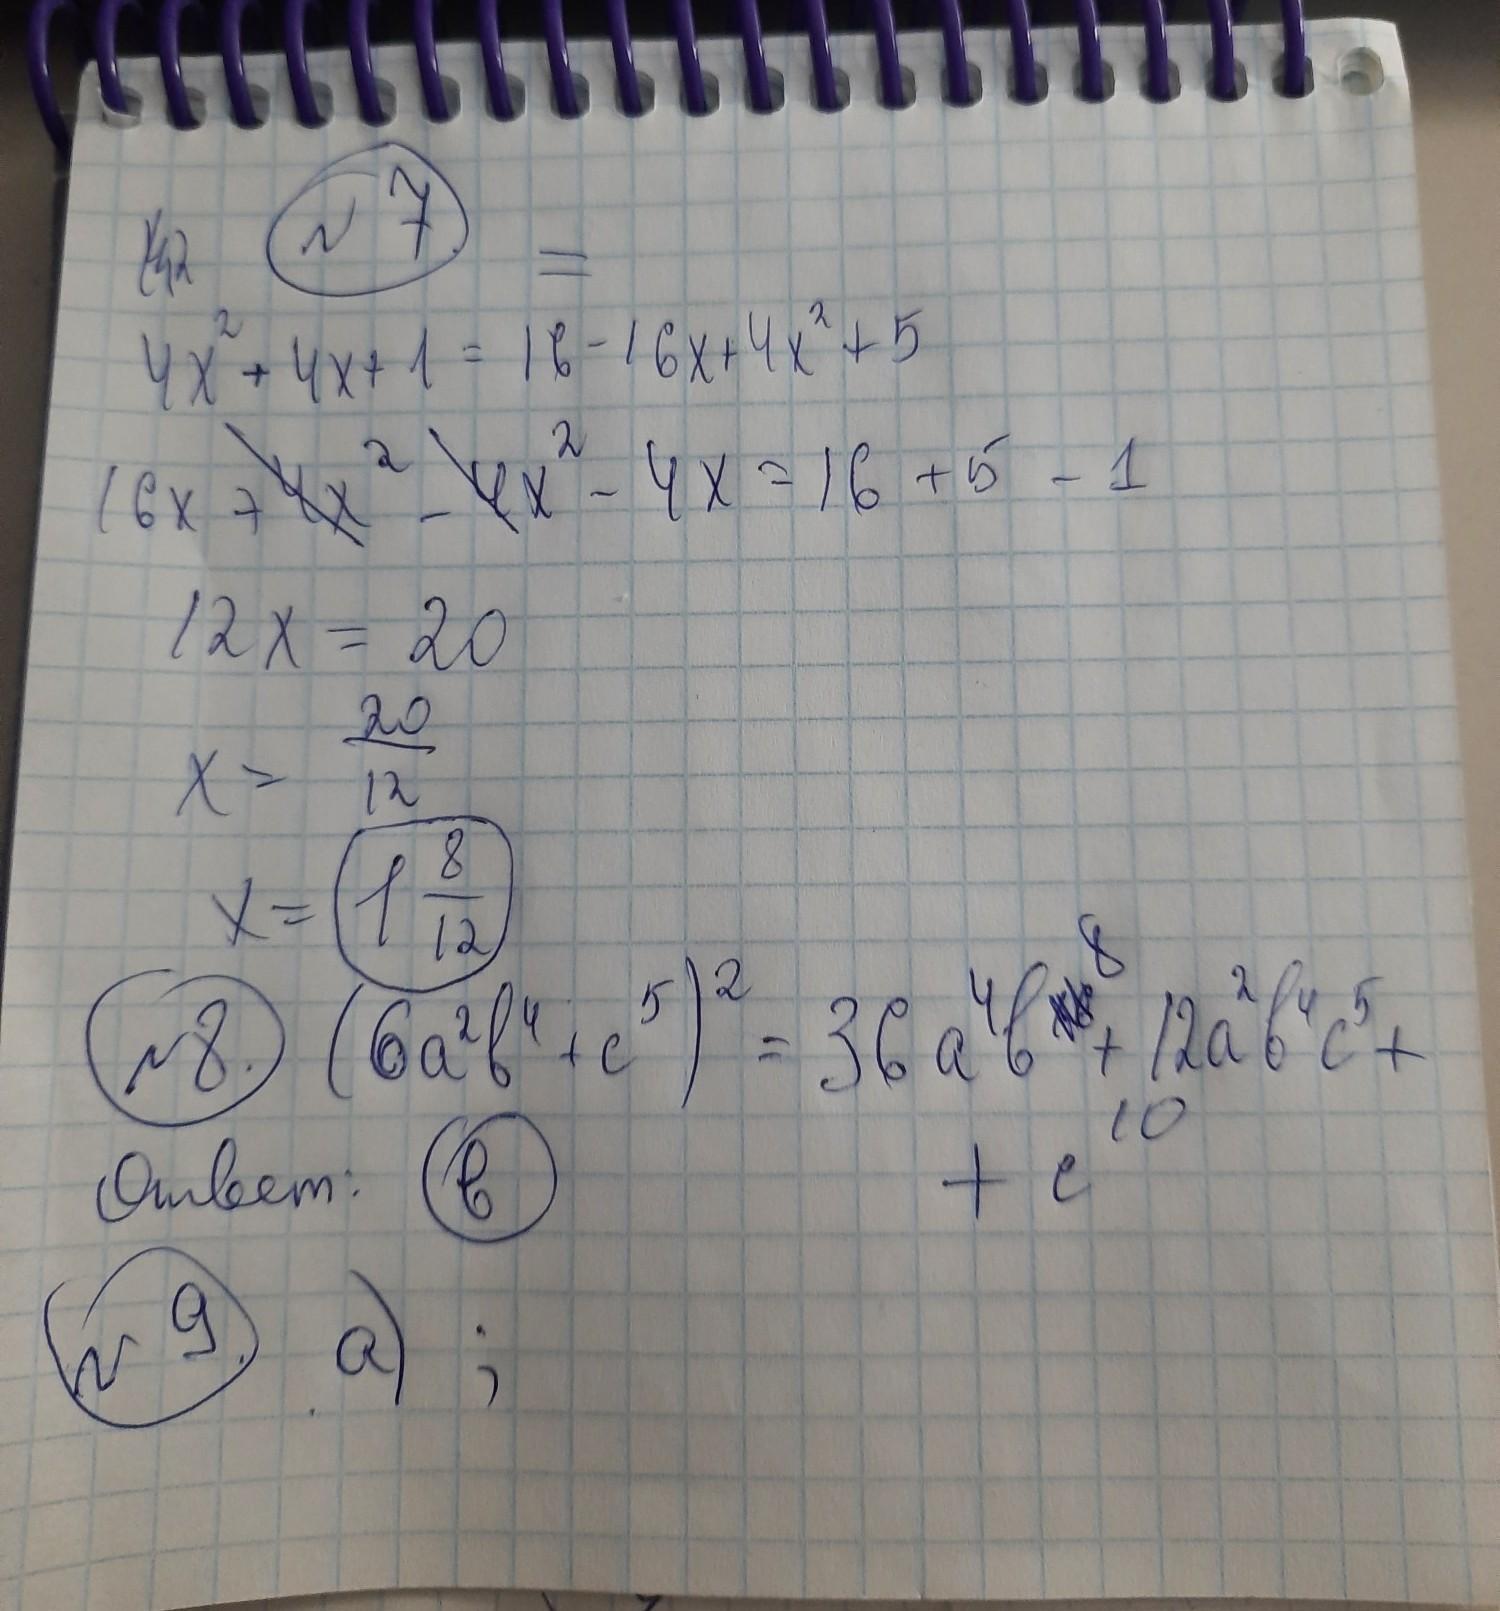 №7.
=
4x² + 4x + 1 = 16 - 16x + 4x² + 5
16x + 4x² - 4x² - 4x = 16 + 5 - 1
12x = 20
x = 20/12
x = 1 8/12
№8. (6a²b⁴ + c⁵)² = 36a⁴b⁸ + 12a²b⁴c⁵ +
+ c¹⁰
Ответ: в
№9. а) ;